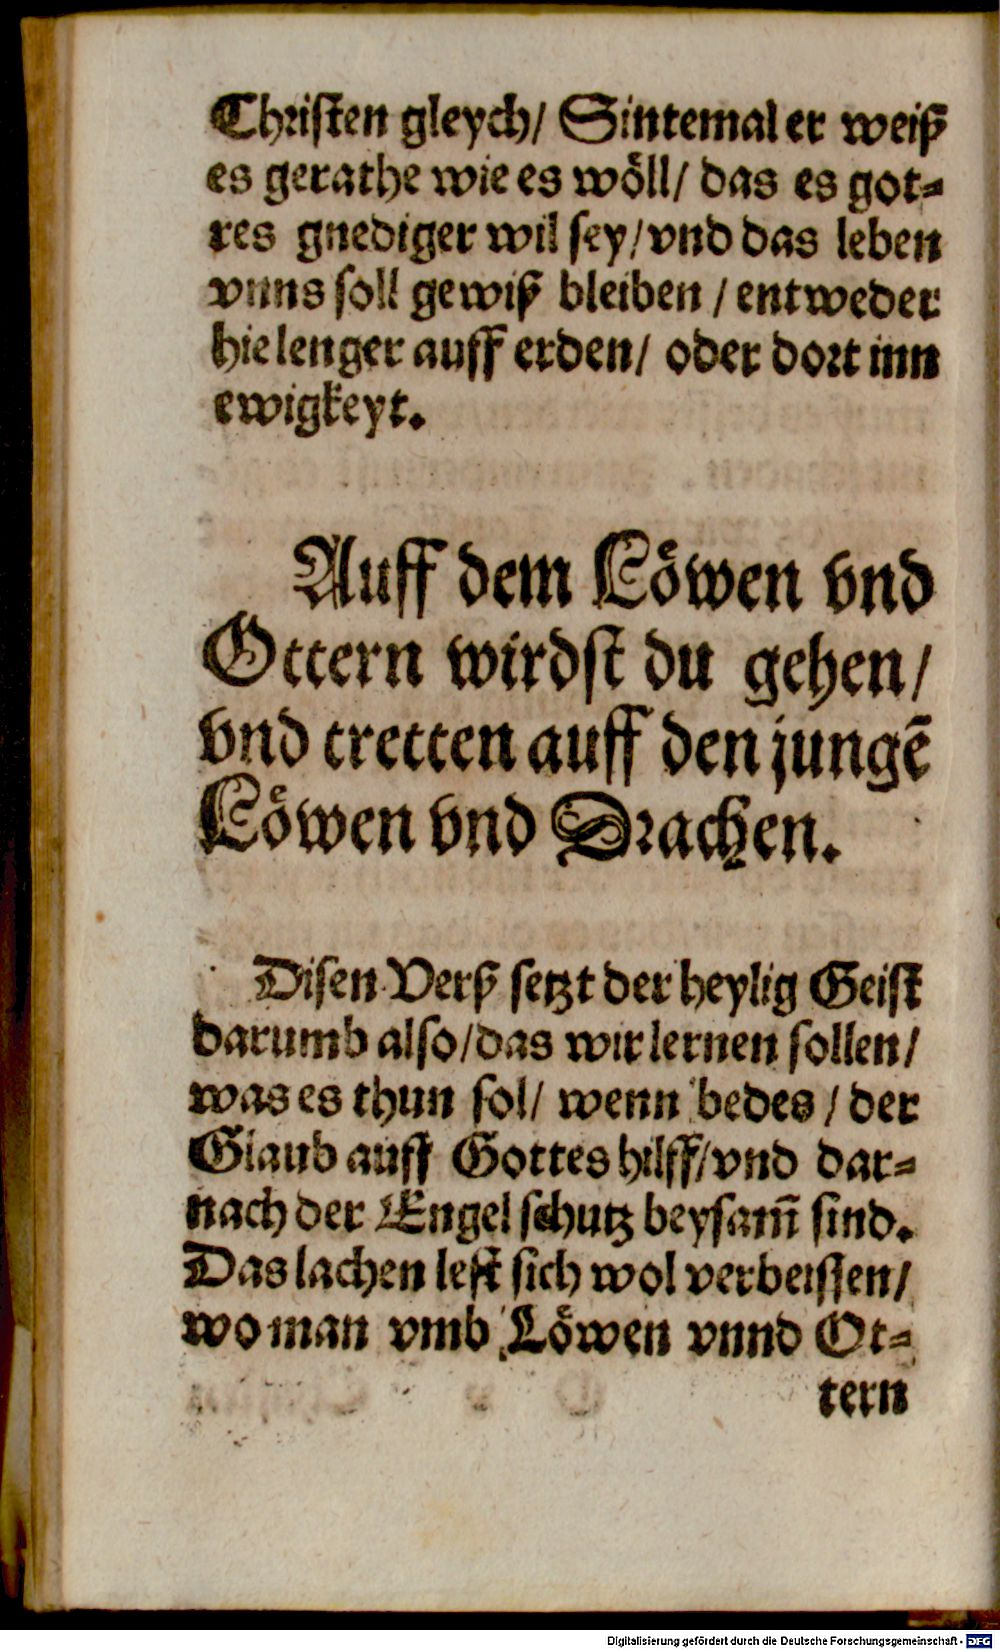 Christen gleych/ Sintemal er weiß
es gerathe wie es wöll/ das es got⸗
tes gnediger wil sey/ vnd das leben
vnns soll gewiß bleiben / entweder
hie lenger auff erden/ oder dort inn
ewigkeyt.
Auff dem Löwen vnd
Ottern wirdst du gehen/
vnd tretten auff den jungē
Löwen vnd Drachen.
Disen Verß setzt der heylig Geist
darumb also/ das wir lernen sollen/
was es thun sol/ wenn bedes / der
Glaub auff Gottes hilff/ vnd dar⸗
nach der Engel schutz beysam̄ sind.
Das lachen lest sich wol verbeissen/
wo man vmb Löwen vnnd Ot⸗
tern
Digitalisierung gefördert durch die Deutsche Forschungsgemeinschaft - DFG